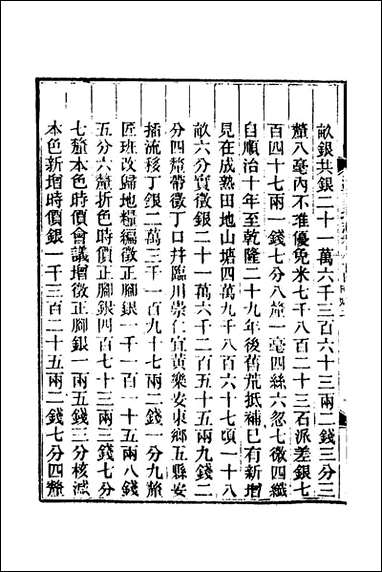 畝銀共銀二十一萬六千三百六十三兩二錢三分三
釐八毫內不堆優免米七千八百二十三石派差銀七
百四十七兩一錢七分八釐一毫四絲六忽七微四纖
自順治十年至乾隆二十九年後舊荒抵補已有新增
見在成熟田地山塘四萬九千八百六十七頃一十八
畝六分實徵銀二十一萬六千二百五十五兩九錢二
分四釐帶徵丁口幷臨川崇仁宜黃樂安東鄉五縣安
插流移丁銀二萬三千一百九十七兩二錢一分九釐
匠班改歸地糧編徵正腳銀一千一百一十五兩八錢
五分六釐折色時價正腳銀四百七十三兩三錢五分
七釐本色時價會議增徵正腳銀一兩五錢三分核減
本色新增時價銀一千三百二十五兩二錢七分四釐